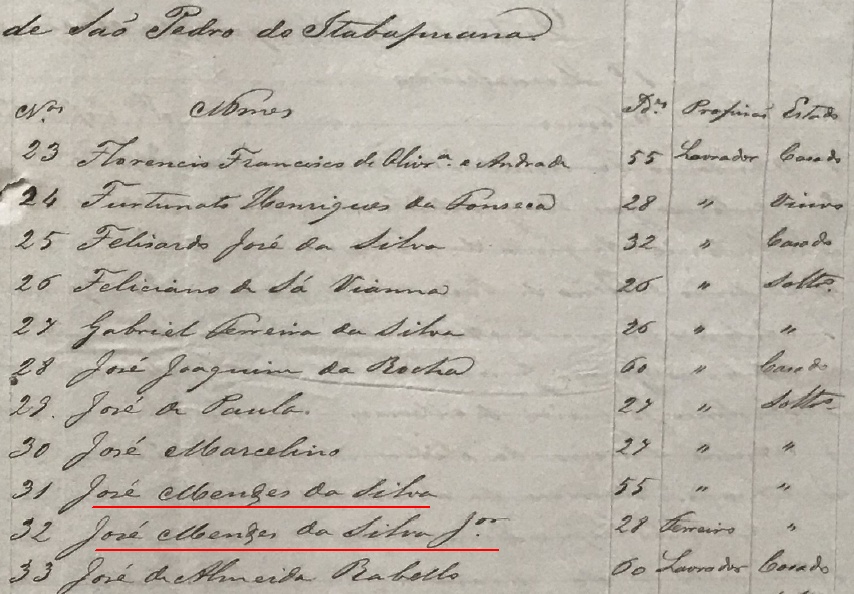 de São Pedro do Itabapuana.
Nos Nomes Ids Profissão Estado
23 Florencio Francisco de Olivra. e Andrade 55 Lavrador Casado
24 Furtunato Henriques da Fonseca 28 " Viuvo
25 Felisardo José da Silva 32 " Casado
26 Feliciano de Sá Vianna 26 " Soltro.
27 Gabriel Ferreira da Silva 26 " "
28 José Joaquim da Rocha 60 " Casado
29. José de Paula. 27 " Soltro.
30 José Marcelino 27 " "
31 José Mendes da Silva 55 " "
32 José Mendes da Silva Jor. 28 Ferreiro "
33 José de Almeida Rabello 60 Lavrador Casado